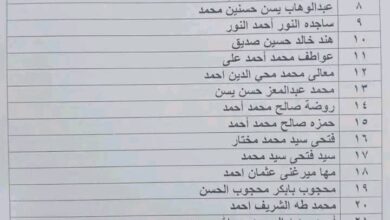 ٨ عبدالوهاب يسن حسنين محمد
٩ ساجده النور أحمد النور
١٠ هند خالد حسين صديق
١١ عواطف محمد أحمد على
١٢ معالى محمد محي الدين احمد
١٣ محمد عبدالمعز حسن يسن
١٤ روضة صالح محمد أحمد
١٥ حمزه صالح محمد أحمد
١٦ فتحى سيد محمد مختار
١٧ سيد فتحى سيد محمد
١٨ مها ميرغنى عثمان احمد
١٩ محجوب بابكر محجوب الحسن
٢٠ محمد طه الشريف احمد